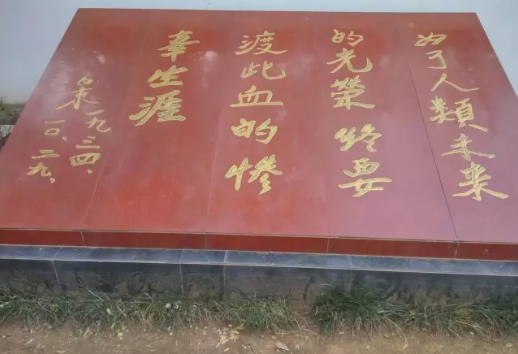 为了人類未来
的光榮終要
渡此血的慘
生涯
一九三四、
一〇、二九、